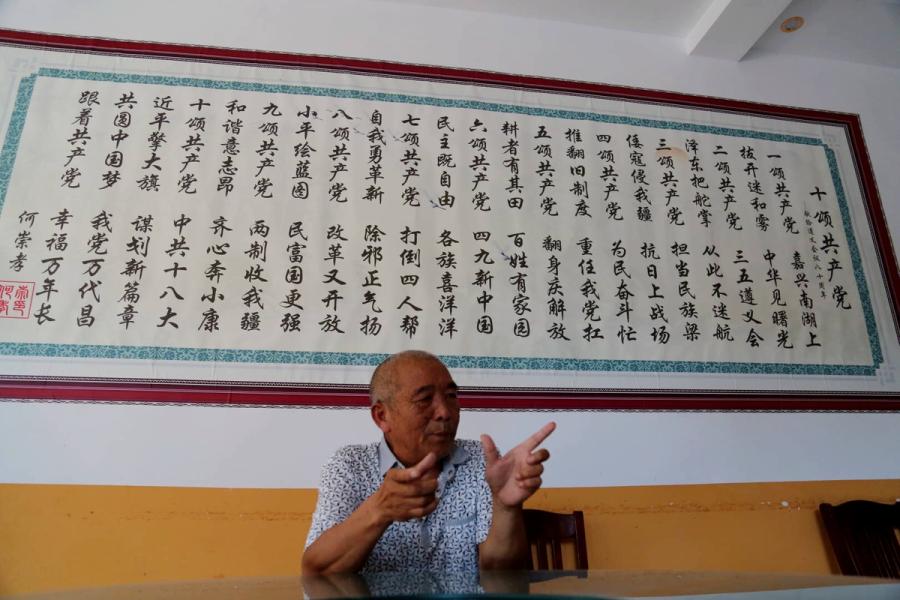 十颂共产党
献给遵义会议八十周年
一颂共产党 嘉兴南湖上
拔开迷和雾 中华见曙光
二颂共产党 三五遵义会
泽东把舵掌 从此不迷航
三颂共产党 担当民族梁
倭寇侵我疆 抗日上战场
四颂共产党 为民奋斗忙
推翻旧制度 重任我党扛
五颂共产党 翻身庆解放
耕者有其田 百姓有家园
六颂共产党 四九新中国
民主既自由 各族喜洋洋
七颂共产党 打倒四人帮
自我勇革新 除邪正气扬
八颂共产党 改革又开放
小平绘蓝图 民富国更强
九颂共产党 两制收我疆
和谐意志昂 齐心奔小康
十颂共产党 中共十八大
近平擎大旗 谋划新篇章
共圆中国梦 我党万代昌
跟着共产党 幸福万年长
何崇孝